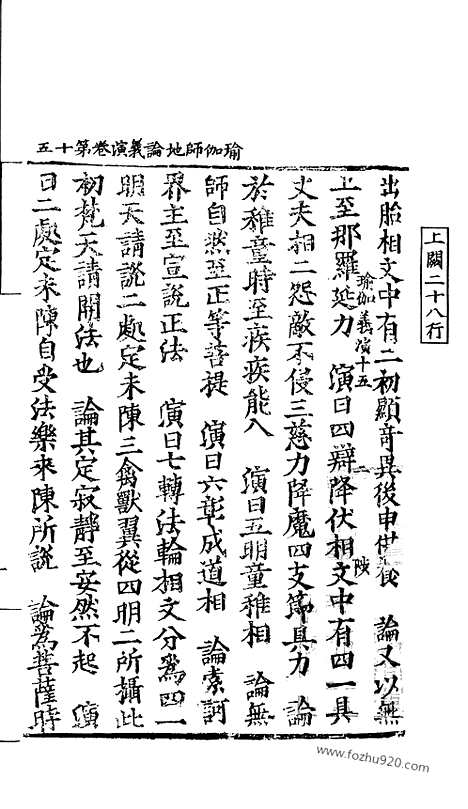 瑜伽師地論義演卷第十五
上闕二十八行
出胎相文中有二初顯奇異後申供養 論又以無
瑜伽義演十五 二 陝
上至那羅延力 演曰四辯降伏相文中有四一具
丈夫相二怨敵不侵三慈力降魔四支節具力 論
於稚童時至疾疾能入 演曰五明童稚相 論無
師自然至正等菩提 演曰六彰成道相 論索訶
界主至宣說正法 演曰七轉法輪相文分為四一
明天請說二處定未陳三禽獸翼從四明二所攝此
初梵天請開法也 論其定寂靜至安然不起 演
曰二處定未陳自受法樂來陳所說 論為菩薩時
www.fozhu920.com